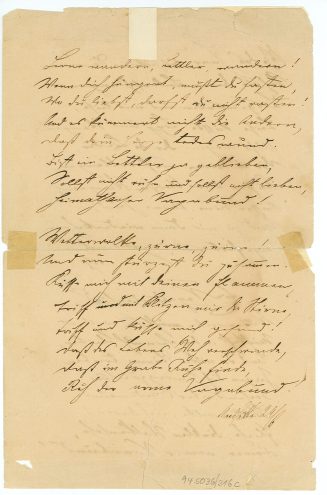 Lerne wandern, Bettler wandern!
Wenn dich hungert, mußt du fasten,
Wo du liebst, darfst du nicht rasten!
Und es kümmert nicht die Andern,
daß dein todeswund.
Bist ein Bettler ja geblieben,
Sollst nicht ruhn und sollst nicht lieben,
Heimathloser Vagabund!
Wetterwolke, zürne, zürne!
Und nun stürzest du zusammen.
Küsse mich mit deinen Flammen,
triff mit Blitzen mir die Stirne,
triff und küsse mich gesund!
daß des Lebens Weh verschwinde,
daß im Grabe Ruhe finde,
Sich der arme Vagabund
94.5036/2160